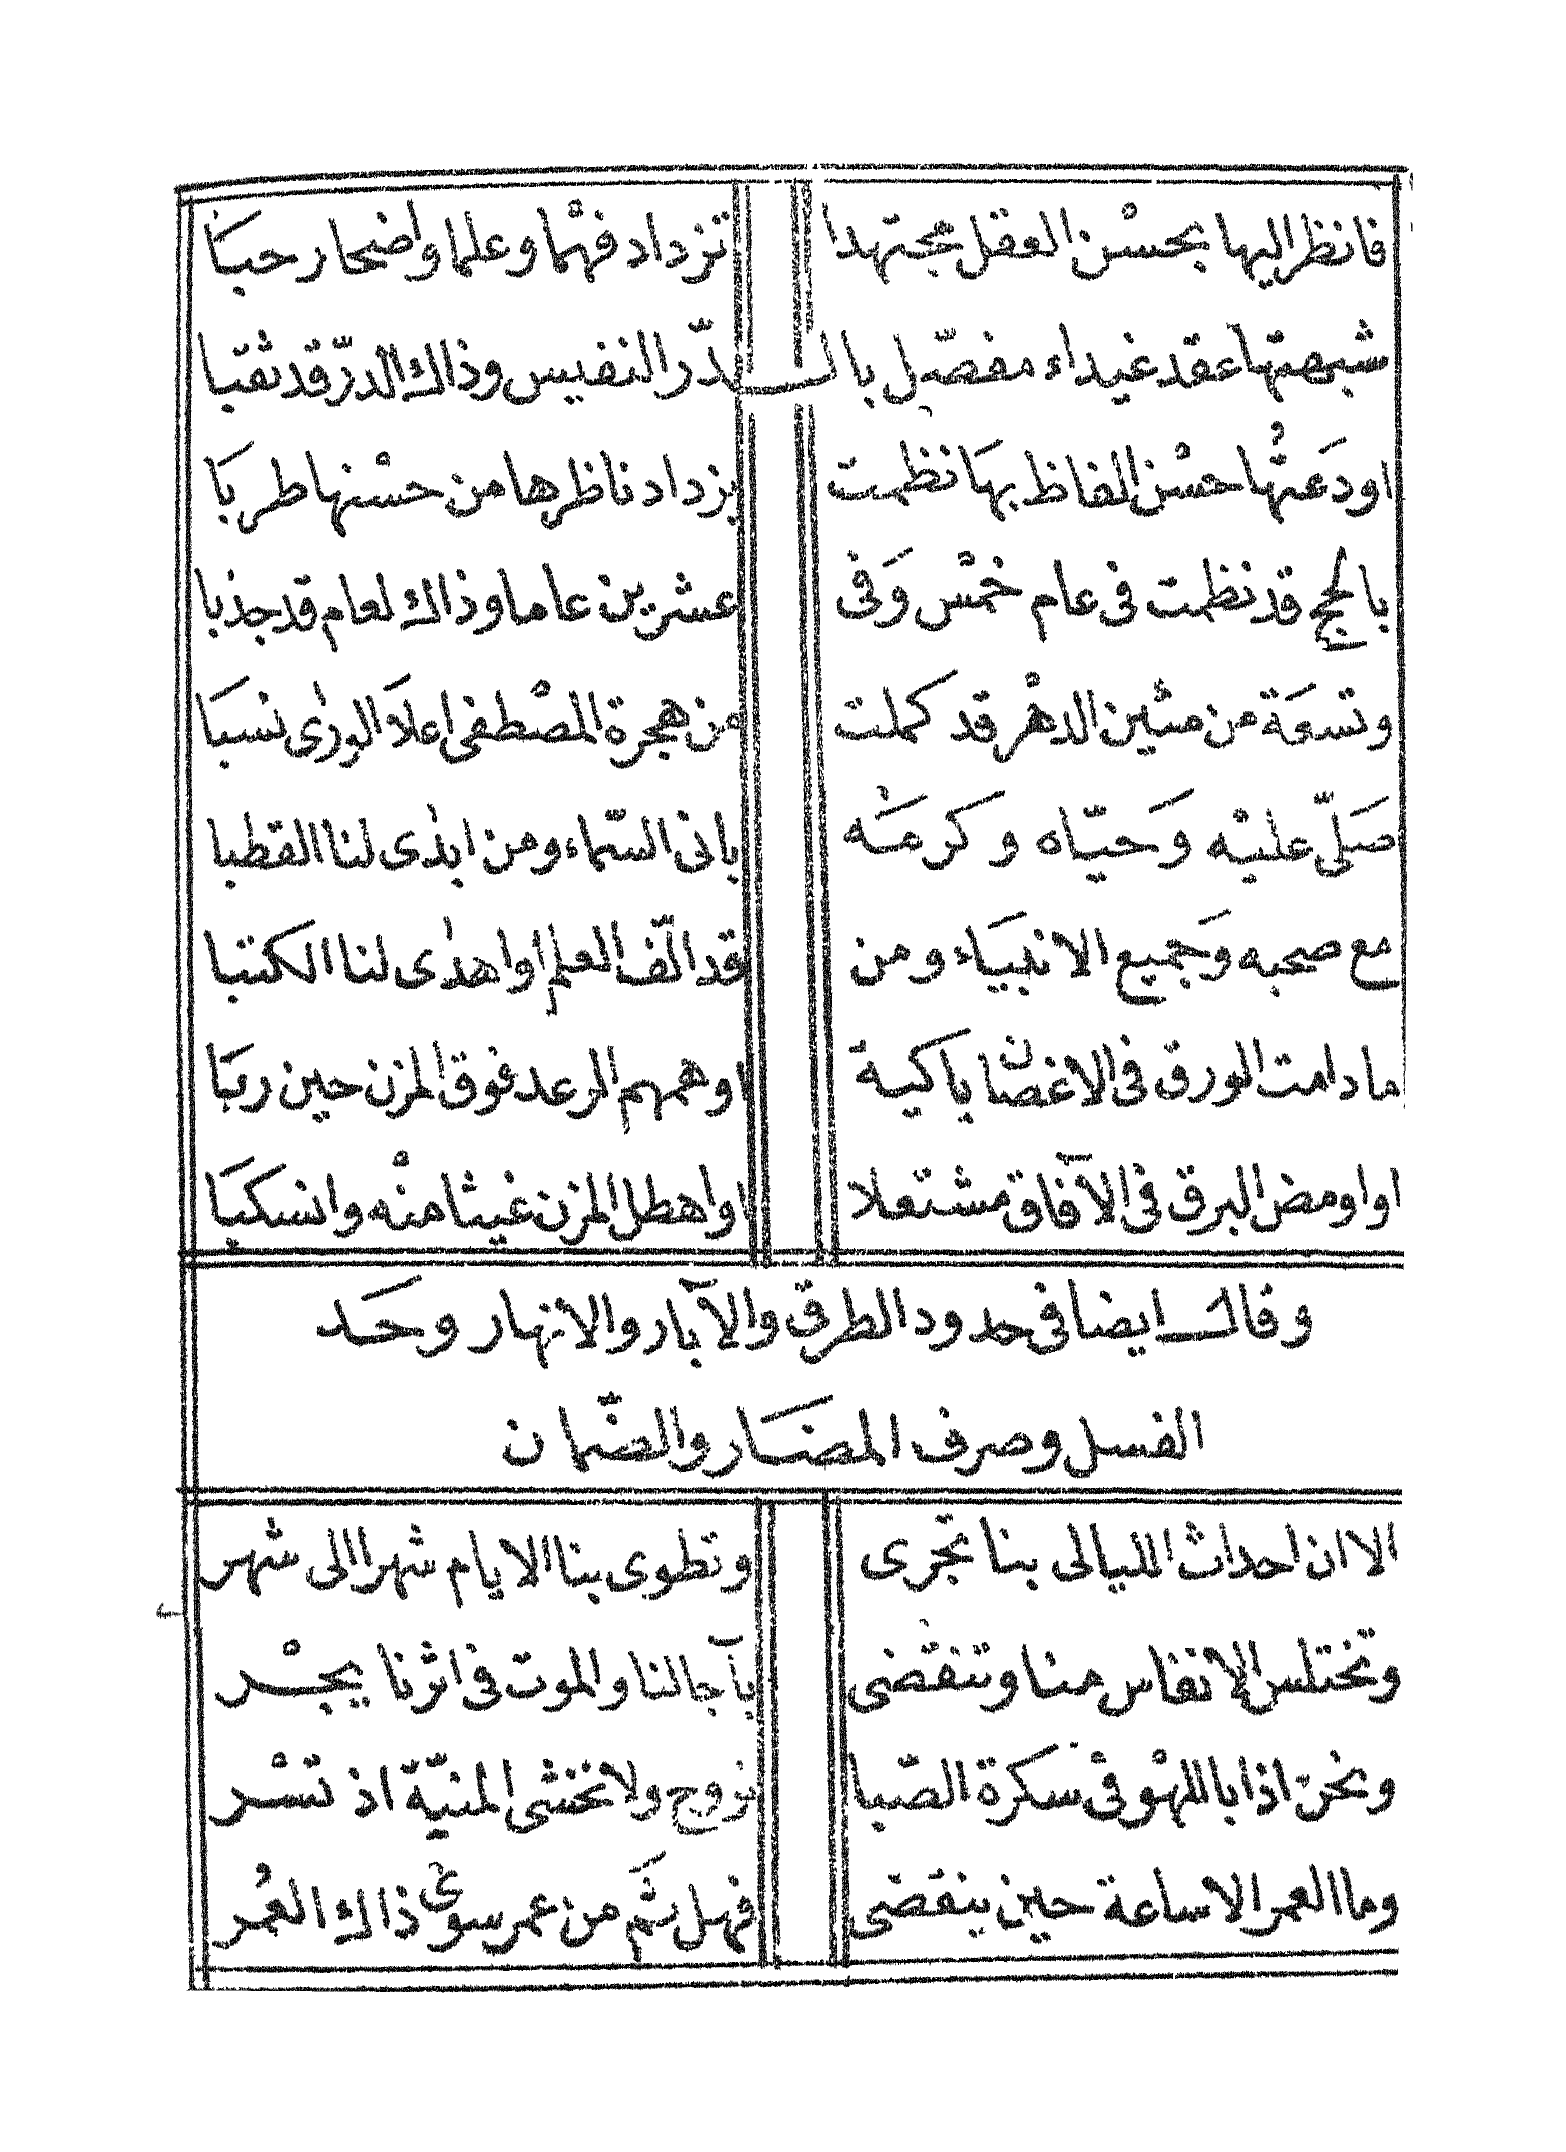 فانظر اليها بحسْن العقل مجتهدا تزداد فهْما وعلما واضحا رحبَا
شبهتها عقد غيداء مفصّل بالـدّر النفيس وذاك الدرّ قد ثقبا
اودَعتُها حسْن الفاظ بهَا نظمت يزداد ناظرها من حسْنها طربَا
بالحج قد نظمت فى عام خمْس وَفى عشرين عاما وذاك لعام قد جذبا
وتسعَة من مئين الدهْر قد كملت من هجرة المصْطفى اعلاَ الورٰى نسبَا
صَلّى عليْه وَحيّاه وكرمَه بانى السّماء ومن ابدٰى لنا القطبا
مع صحبه وَجميع الانبيَاء ومن قد الّف العلم او اهدٰى لنا الكتبا
ما دامت الورق فى الاغصان باكيَة او همهم الرعد فوق المزن حين ربَا
او اومض البرق فى الآفاق مشتعلا او اهطل المزن غيثا منْه وانسكبَا
وقال ايضا فى حدود الطرق والآبار والانهار وحَد
الفسل وصرف المضَار والضّمان
الا ان احداث الليالى بنا تجرى وتطوى بنا الايام شهرا الى شهر
وتختلس الانفاس منا وتنقضى بآجالنا والموت فى اثرنا يجْر
ونحن اذا باللهْو فى سكرة الصّبا نروح ولا نخشى المنيّة اذ تسْر
وما العمر الا ساعة حين ينقضى فهل ثَم من عمر سوى ذاك العُمر